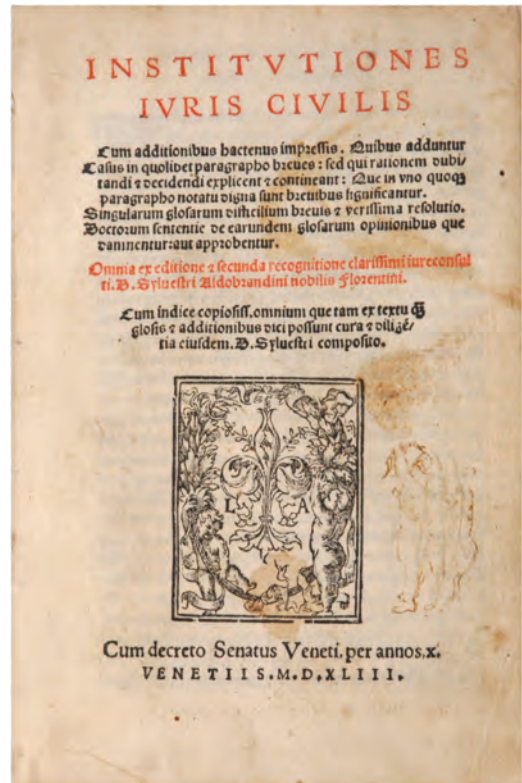 INSTITVTIONES
IVRIS CIVILIS
Cum additionibus hactenus impressis. Quibus adduntur
Casus in quolibet paragrapho breues: sed qui rationem dubi/
tandi ⁊ decidendi explicent ⁊ contineant: Que in vno quoqꝫ
paragrapho notatu digna sunt breuibus significantur.
Singularum glosarum difficilium breuis ⁊ verissima resolutio.
Doctorum sententie de earundem glosarum opinionibus que
damnentur: aut approbentur.
Omnia ex editione ⁊ secunda recognitione clarissimi iureconsul
ti. D. Syluestri Aldobrandini nobilis Florentini.
Cum indice copiosiss. omnium que tam ex textu ꝙ̃
glosis ⁊ additionibus dici possunt cura ⁊ diligē/
tia eiusdem. D. Syluestri composito.
L A
Cum decreto Senatus Veneti, per annos.x.
VENETIIS.M.D.XLIII.